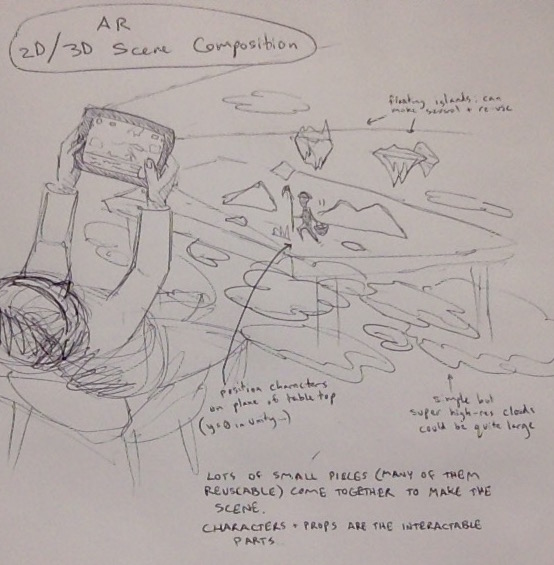 AR
2D/3D Scene Composition
floating islands; can
make several + re-use
position characters
on plane of table top
(y=0 in Unity...)
simple but
super high-res clouds
could be quite large
LOTS OF SMALL PIECES (MANY OF THEM
REUSEABLE) COME TOGETHER TO MAKE THE
SCENE.
CHARACTERS + PROPS ARE THE INTERACTABLE
PARTS